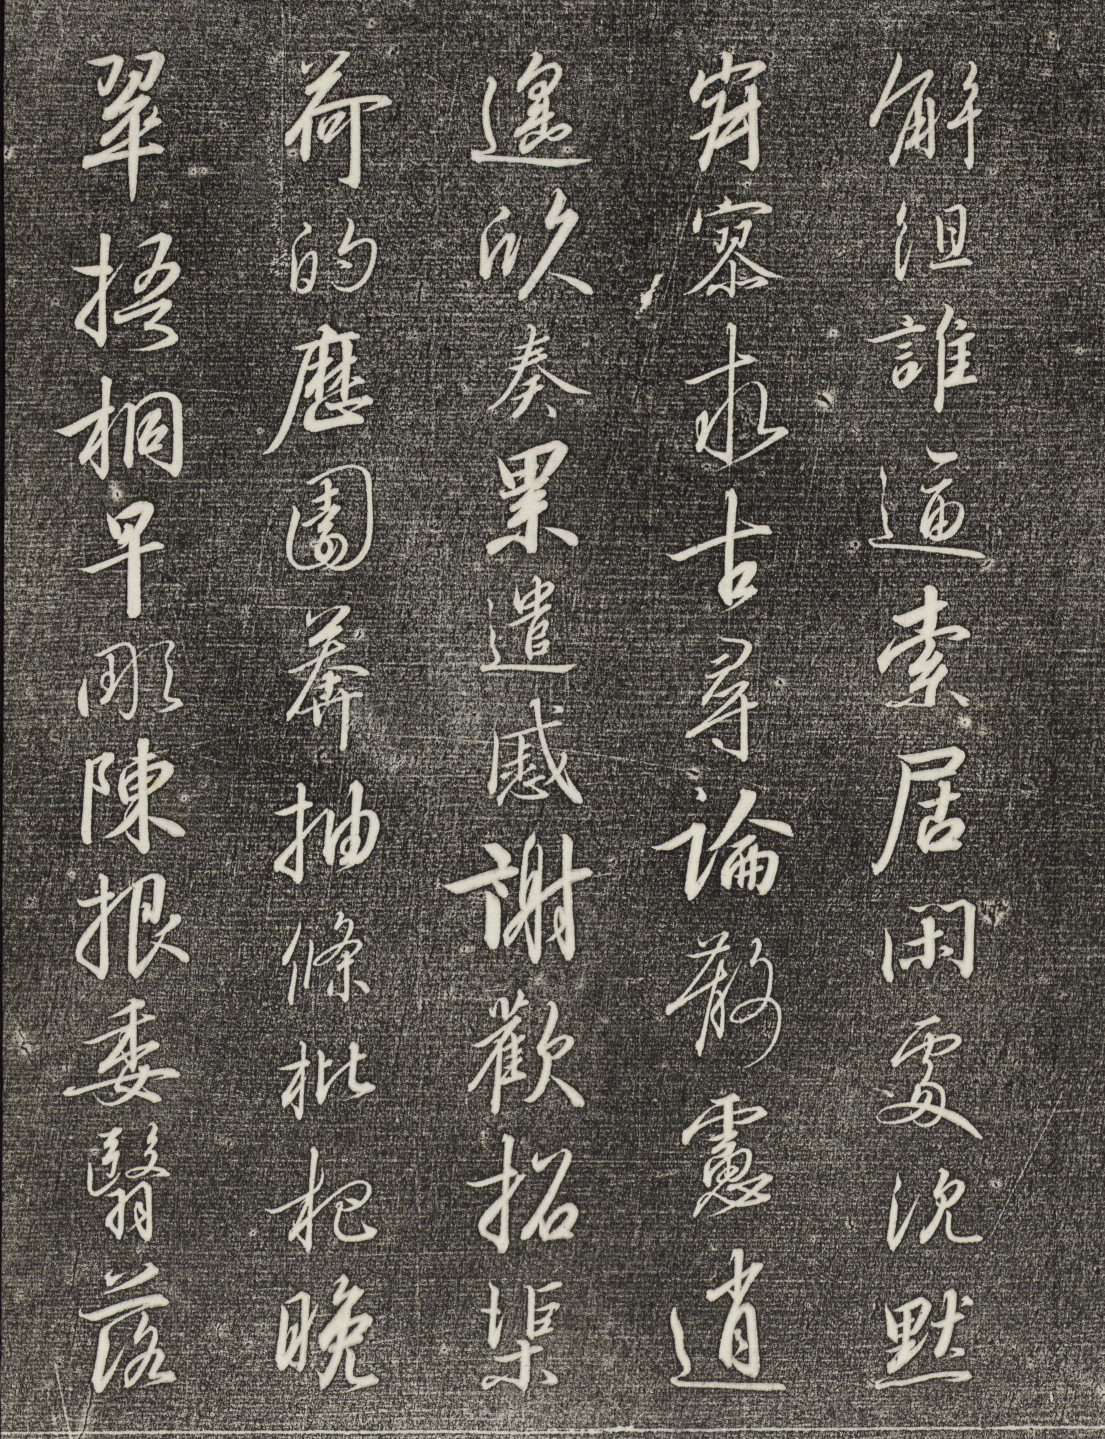 解組誰逼索居閑處沉默
寂寥求古尋論散慮逍
遙欣奏累遣慼謝歡招渠
荷的歷園莽抽條枇杷晚
翠梧桐早彫陳根委翳落